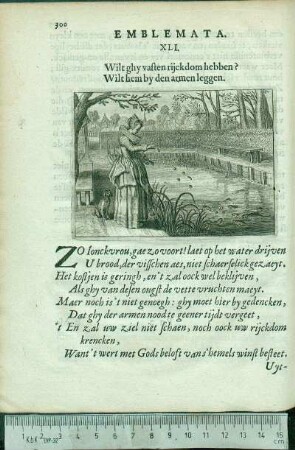 300
EMBLEMATA.
XLI.
Wilt ghy vasten rijckdom hebben?
Wilt hem by den armen leggen.
ZO Ionckvrou, gae zo voort! laet op het water drijven
U brood, der visschen aes, niet schaerselick gezaeyt.
Het kostjen is geringh, en 't zal oock wel beklijven,
Als ghy van desen ougst de vette vruchten maeyt.
Maer noch is 't niet genoegh: ghy moet hier by gedencken,
Dat ghy der armen nood te geener tijdt vergeet,
't En zal uw ziel niet schaen, noch oock uw rijckdom
krencken,
Want 't wert met Gods beloft van 's hemels winst besteet.
Uyt-
0 1 2 3 4 5 6 7 8 9 10 11 12 13 14 15
cm